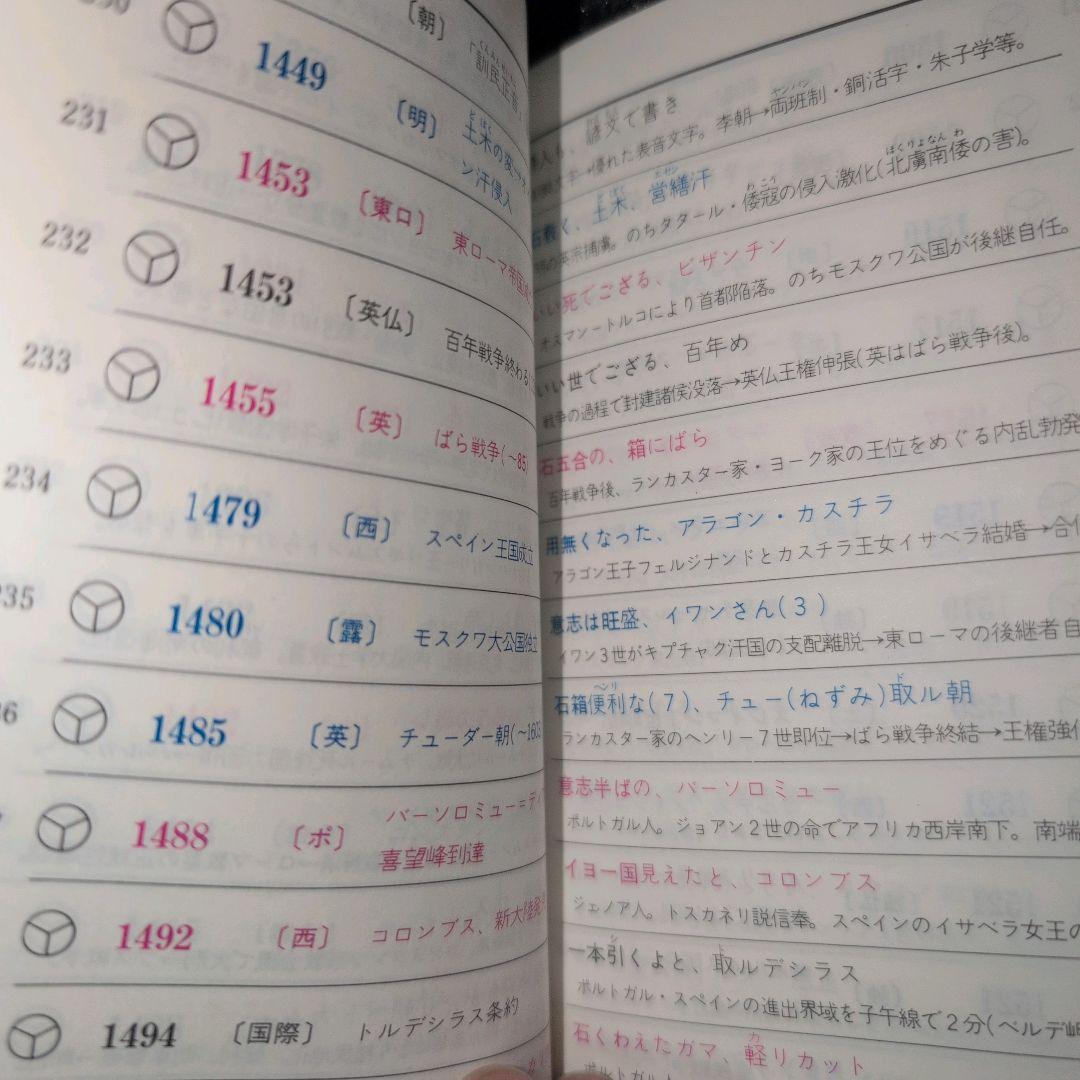 〔朝〕
「訓民正音」
1449
〔明〕
土木の変
ン汗侵入
231
1453
〔東ロ〕
東ローマ帝国
232
1453
〔英仏〕
百年戦争終わる
233
1455
〔英〕
ばら戦争(~85)
234
1479
〔西〕
スペイン王国成立
235
1480
〔露〕
モスクワ大公国独立
1485
〔英〕
チューダー朝(~1603
1488
〔ポ〕
バーソロミュー＝ディ
喜望峰到達
1492
〔西〕
コロンブス、新大陸発
1494
〔国際〕
トルデシラス条約
諺文で書き
優れた表音文字。李朝→両班制・銅活字・朱子学等。
ヤンバン
く、土木、営繕汗
どぼく
エセン
英宗捕虜。のちタタール・倭寇の侵入激化(北虜南倭の害)。
わこう
ほくりょなんわ
いい死でござる、ビザンチン
オスマン＝トルコにより首都陥落。のちモスクワ公国が後継自任。
いい世でござる、百年め
戦争の過程で封建諸侯没落→英仏王権伸張(英はばら戦争後)。
石五合の、箱にばら
百年戦争後、ランカスター家・ヨーク家の王位をめぐる内乱勃発
用無くなった、アラゴン・カスチラ
アラゴン王子フェルジナンドとカスチラ王女イサベラ結婚→合
意志は旺盛、イワンさん(3)
イワン3世がキプチャク汗国の支配離脱→東ローマの後継者自
石箱便利な(7)、チュー(ねずみ)取ル朝
ヘンリ
ド
ランカスター家のヘンリー7世即位→ばら戦争終結→王権強化
意志半ばの、バーソロミュー
ポルトガル人。ジョアン2世の命でアフリカ西岸南下。南端
イヨー国見えたと、コロンブス
ジェノア人。トスカネリ説信奉。スペインのイサベラ女王の
一本引くよと、取ルデシラス
シ
ト
ポルトガル・スペインの進出界域を子午線で2分(ベルデ岬
石くわえたガマ、軽リカット
カ
ポルトガル人